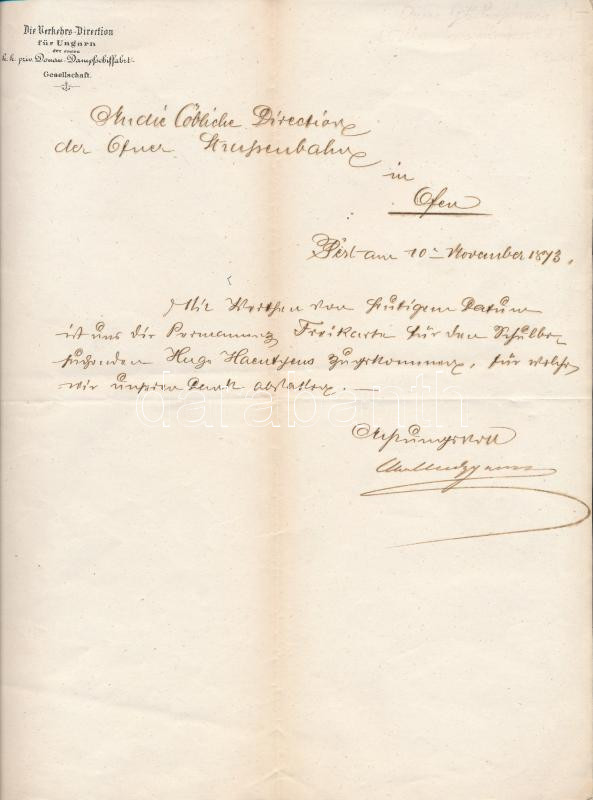 Die Verkehrs-Direction
für Ungarn
der ersten
k. k. priv. Donau-Dampfschiffahrt-
Gesellschaft.
An die Löbliche Direction
der Ofner Strassenbahn
in
Ofen
Pest am 10 November 1873.
Mit Werthen von heutigem Datum
ist uns die Permanenz Freikarte für den Schulbe-
suchenden Hugo Haentjens zugekommen, für welche
wir unseren Dank abstatten. —
Achtungsvoll
darabanth